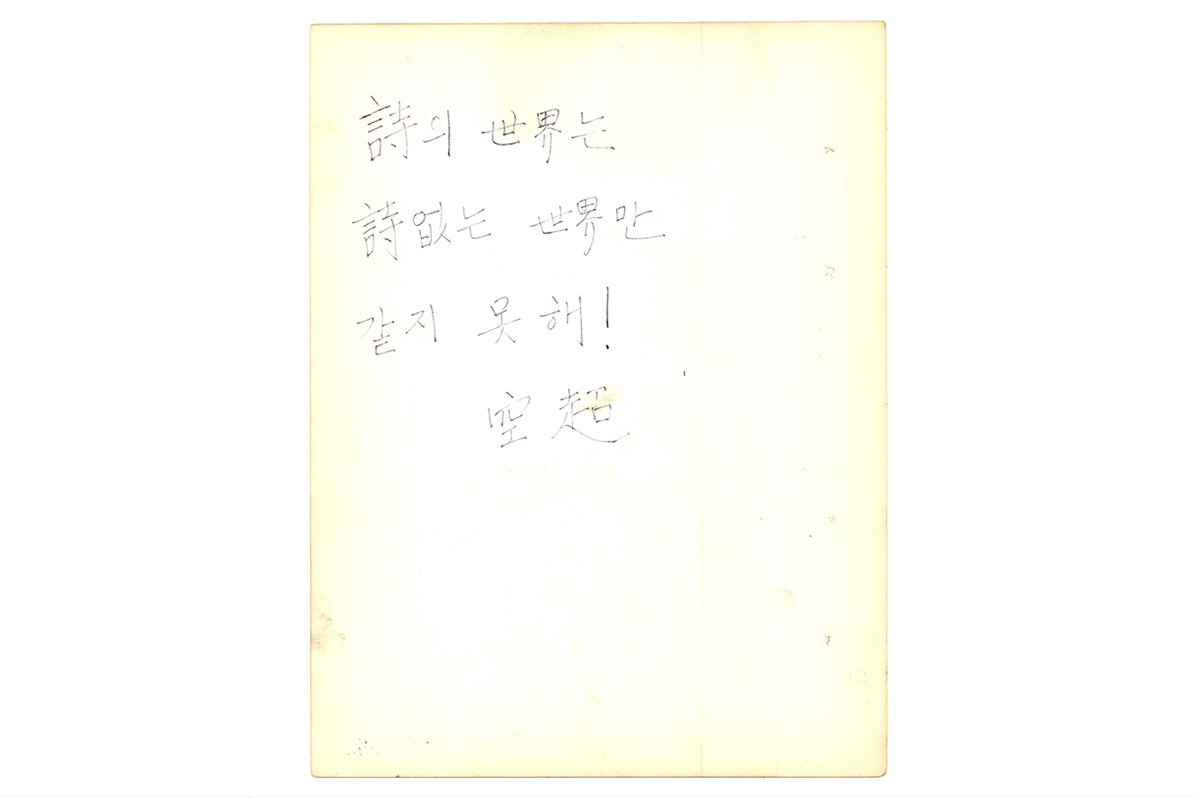 詩의 世界는
詩없는 世界만
같지 못해!
空超